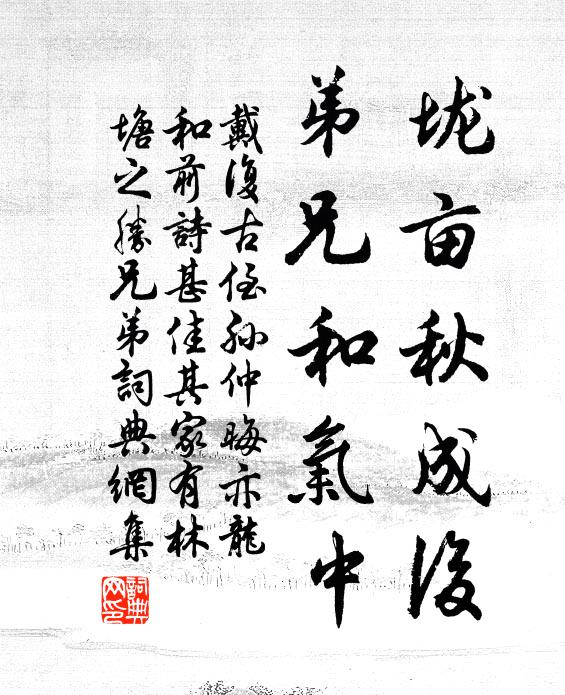 垅亩秋成後
弟兄和氣中
戴復古侄孙仲晦亦龍
和前詩甚佳其家有林
塘之勝兄弟詞典網集
詞典網印